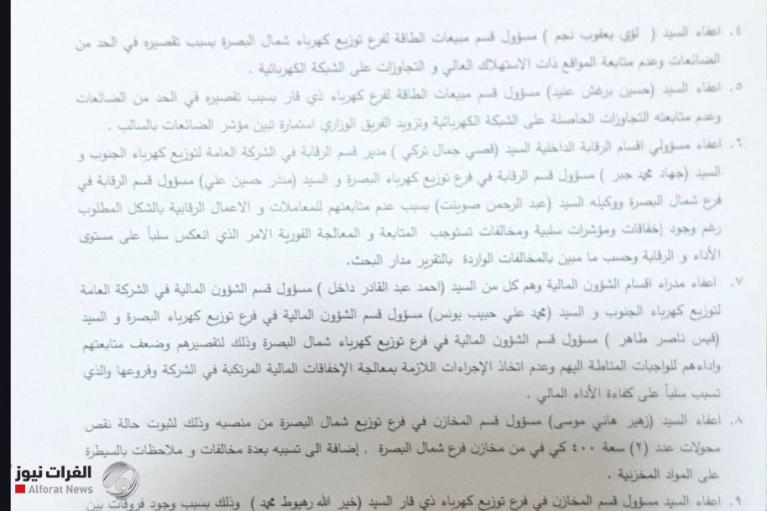 ٤. اعفاء السيد ( لؤي يعقوب نجم ) مسؤول قسم مبيعات الطاقة لفرع توزيع كهرباء شمال البصرة بسبب تقصيره في الحد من
الضائعات وعدم متابعة المواقع ذات الاستهلاك العالي و التجاوزات على الشبكة الكهربائية .
٥. اعفاء السيد (حسين برغش عنيد) مسؤول قسم مبيعات الطاقة لفرع كهرباء ذي قار بسبب تقصيره في الحد من الضائعات
وعدم متابعته التجاوزات الحاصلة على الشبكة الكهربائية وتزويد الفريق الوزاري استمارة تبين مؤشر الضائعات بالسالب .
٦. اعفاء مسؤولي اقسام الرقابة الداخلية السيد (قصي جمال تركي ) مدير قسم الرقابة في الشركة العامة لتوزيع كهرباء الجنوب و
السيد (جهاد محمد جبر ) مسؤول قسم الرقابة في فرع توزيع كهرباء البصرة و السيد (منذر حسين علي) مسؤول قسم الرقابة في
فرع شمال البصرة ووكيله السيد (عبد الرحمن صوينت) بسبب عدم متابعتهم للمعاملات و الاعمال الرقابية بالشكل المطلوب
رغم وجود إخفاقات ومؤشرات سلبية ومخالفات تستوجب المتابعة و المعالجة الفورية الامر الذي انعكس سلباً على مستوى
الأداء و الرقابة وحسب ما مبين بالمخالفات الواردة بالتقرير مدار البحث.
٧. اعفاء مدراء اقسام الشؤون المالية وهم كل من السيد (احمد عبد القادر داخل ) مسؤول قسم الشؤون المالية في الشركة العامة
لتوزيع كهرباء الجنوب و السيد (محمد علي حبيب يونس) مسؤول قسم الشؤون المالية في فرع توزيع كهرباء البصرة و السيد
(قيس ناصر طاهر ) مسؤول قسم الشؤون المالية في فرع توزيع كهرباء شمال البصرة وذلك لتقصيرهم وضعف متابعتهم
واداءهم للواجبات المناطة اليهم وعدم اتخاذ الإجراءات اللازمة بمعالجة الإخفاقات المالية المرتكبة في الشركة وفروعها والذي
تسبب سلباً على كفاءة الأداء المالي .
٨. اعفاء السيد (زهير هاني موسى) مسؤول قسم المخازن في فرع توزيع شمال البصرة من منصبه وذلك لثبوت حالة نقص
محولات عدد (٢) سعة ٤٠٠ كي في من مخازن فرع شمال البصرة . إضافة الى تسببه بعدة مخالفات و ملاحظات بالسيطرة
على المواد المخزنية .
٩. اعفاء السيد مسؤول قسم المخازن في فرع توزيع كهرباء ذي قار السيد (خير الله رهيوط محمد ) وذلك بسبب وجود فروقات بين
الفرات نيوز
Alforat News